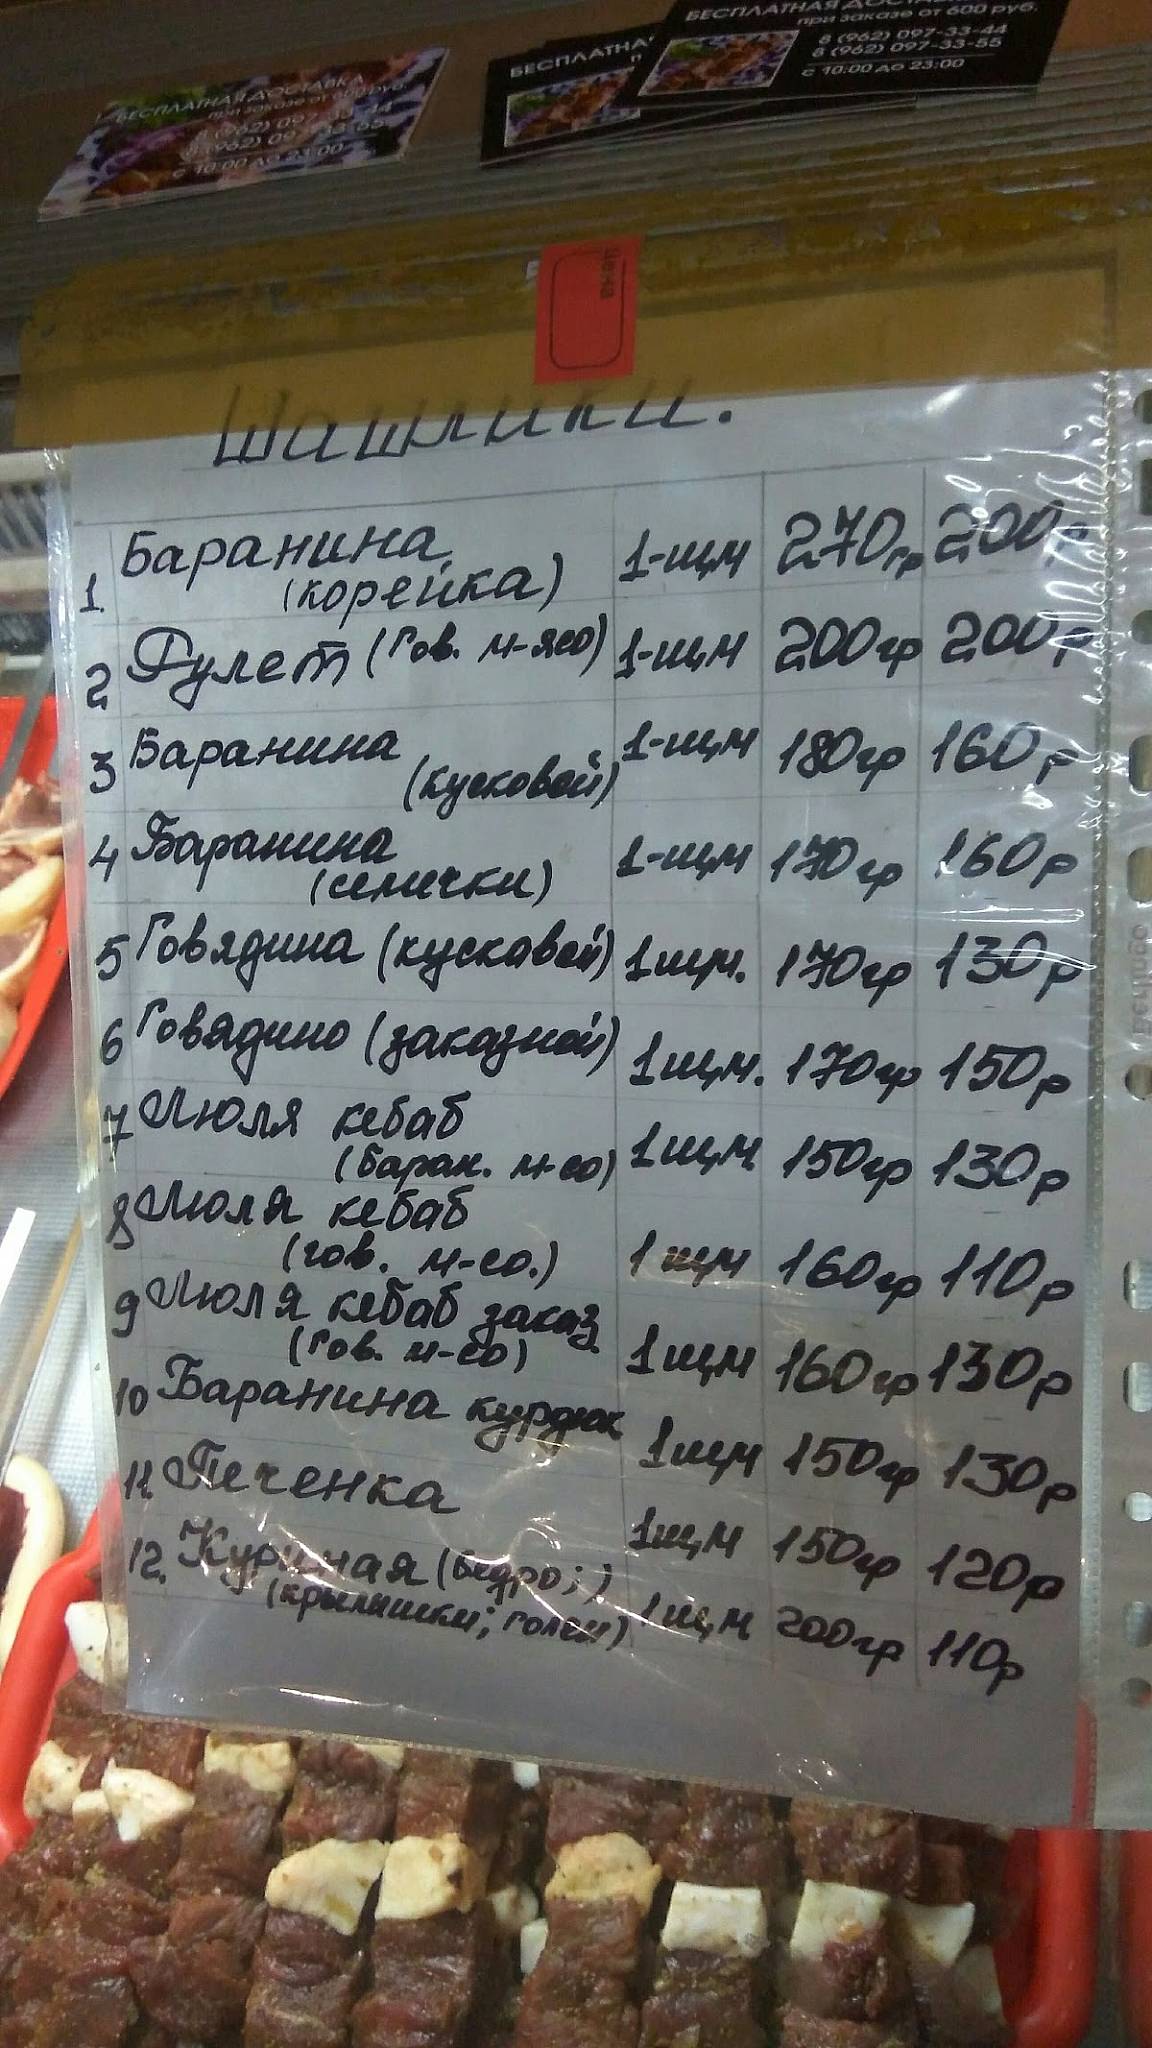 БЕСПЛАТНАЯ ДОСТАВКА
при заказе от 600 руб.
8 (962) 097-33-44
8 (962) 097-33-55
с 10:00 до 23:00
БЕСПЛАТНА
БЕСПЛАТНАЯ ДОСТАВКА
при заказе от 600 руб.
8 (962) 097-33-44
8 (962) 097-33-55
с 10:00 до 23:00
Цена
Шашлики.
1. Баранина (корейка) 1-шм 270гр 200р
2 Рулет (Гов. м-ясо) 1-шм 200гр 200р
3 Баранина (кусковой) 1-шм 180гр 160р
4 Баранина (семички) 1-шм 170гр 160р
5 Говядина (кускавой) 1шм. 170гр 130р
6 Говядино (заказной) 1шм. 170гр 150р
7 Люля кебаб (баран. м-со) 1шм 150гр 130р
8 Люля кебаб (гов. м-со.) 1шм 160гр 110р
9 Люля кебаб заказ. (Гов. м-со) 1шм 160гр 130р
10 Баранина курдюк 1шм 150гр 130р
11. Печенка 1шм 150гр 120р
12. Куриная (бедро;) (крылышки; голен) 1шм 200гр 110р